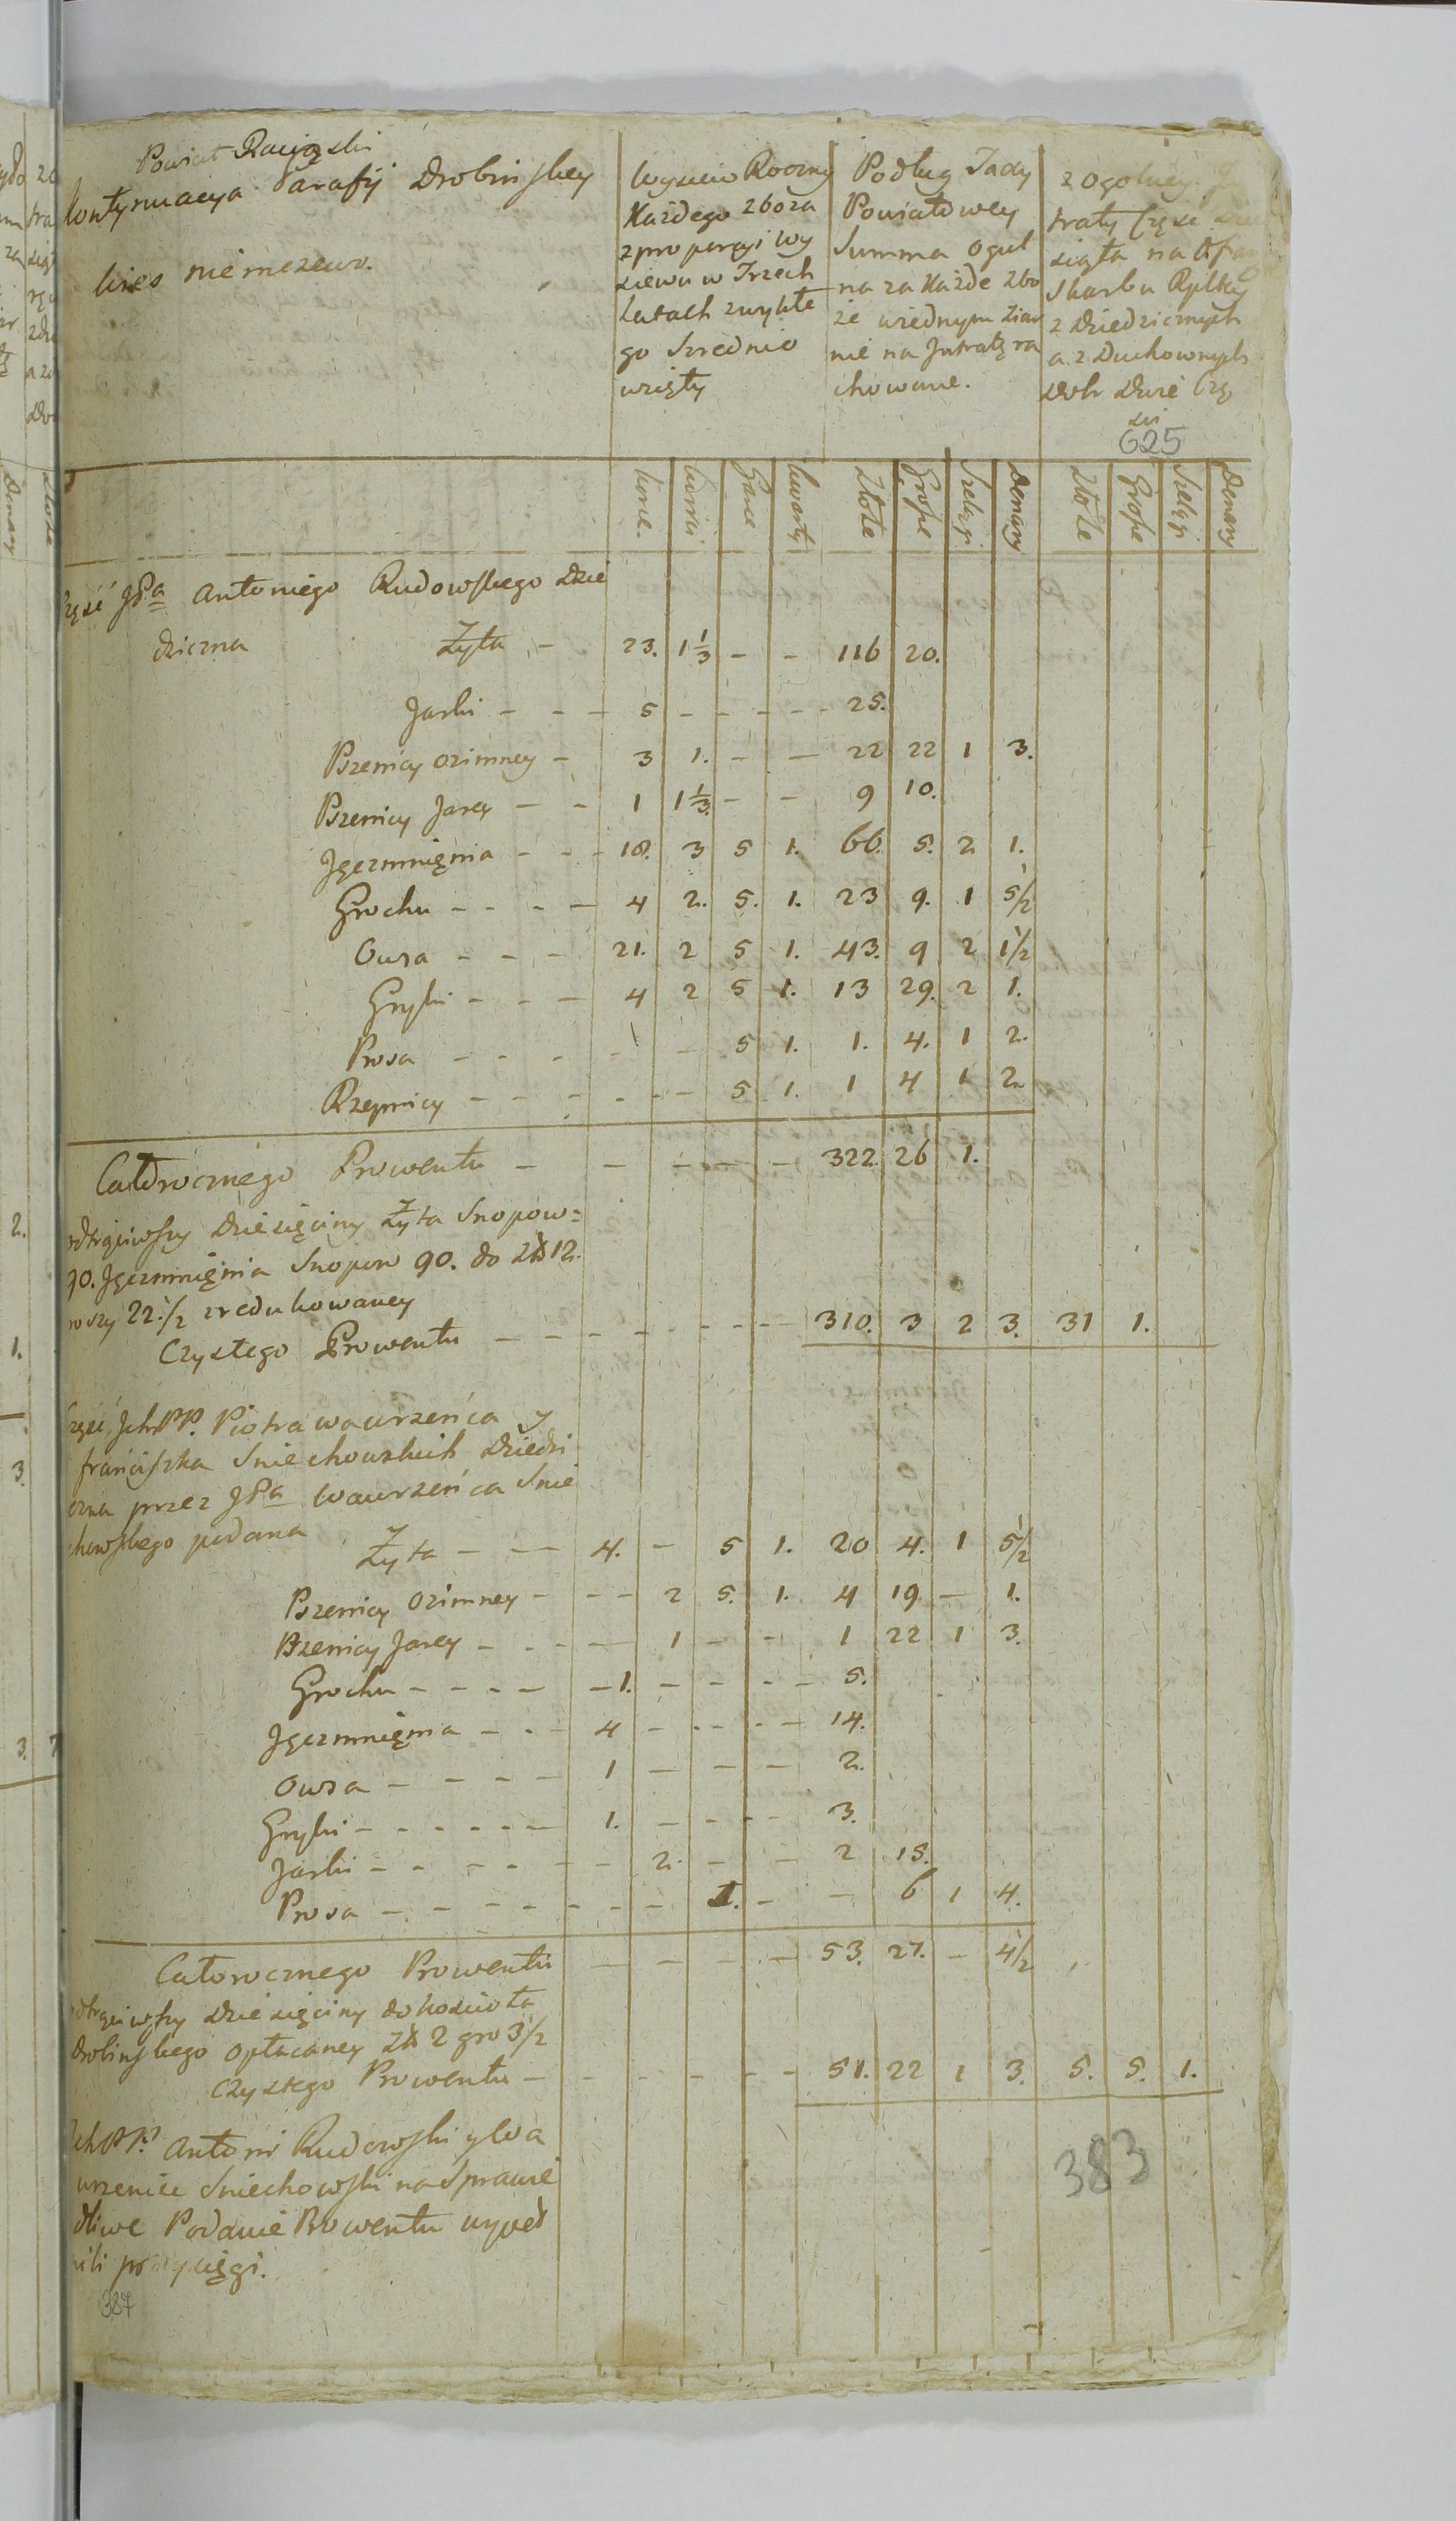 Powiat Raciąski
kontynuacya Parafij Drobinskey
wies niemczewo.
Wysiew Roczny
Każdego zboża
z proporcyi wy
siewu w Trzech
Latach zwykłe
go Srednio
wzięty
Podług Taxy
Powiatowey
Summa ogul
na za Każde zbo
że wiednym Ziar
nie na Jntratę ra
chowane.
z ogolney
traty Częsc
siąta na Ofia
Skarbu Rpltey
z Dziedzicznych
a z Duchownych
Dobr Dwie Czę
sci
625
korce. cwierci Garce kwarty Złote Grosze Szelągi Denary Złote Grosze Szelągi Denary
Częsć JPa Antoniego Rudowskiego Dzie
dziczna Żyta - 23. 1 1/3 - - 116 20.
Jarki - - - 5 - - - - - 25.
Pszenicy ozimney - 3 1. - - 22 22 1 3.
Pszenicy Jarey - - 1 1 1/3. - - 9 10.
Jęczmnięnia - - - 18. 3 5 1. 66. 5. 2 1.
Grochu - - - - 4 2. 5. 1. 23 9. 1 5/2
Owsa - - - 21. 2 5 1. 43. 9 2 1 1/2
Gryki - - - 4 2 5 1. 13 29. 2 1.
Prosa - - - - - 5 1. 1. 4. 1 2.
Rzepnicy - - - - - - 5 1. 1 4 1 2.
Całorocznego Prowentu - - - - - 322. 26 1.
odtrąciwszy Dziesięciny Żyta Snopow=
90. Jęczmnięnia Snopow 90. do Zł 12.
groszy 22. 1/2 zredukowaney
Czystego Prowentu - - - - - - - - 310. 3 2 3. 31 1.
Częsć JchPP. Piotra wawrzeńca y
franciszka Sniechowskich Dziedzi
czna przez JPa wawrzeńca Snie
chowskiego podana
Żyta - - 4. - 5 1. 20 4. 1 5/2
Pszenicy ozimney - - - 2 5. 1. 4 19 - 1.
Pszenicy Jarey - - - - 1 - - 1 22 1 3.
Grochu - - - - - 1. - - - - 5.
Jęczmnięnia - - - 4 - - - - - 14.
Owsa - - - - 1 - - - 2.
Gryki - - - - - - 1. - - - - 3.
Jarki - - - - - - 2. - - 2 15.
Prosa - - - - - - - 1. - - 6 1 4.
Całorocznego Prowentu - - - - 53. 27. - 4 1/2
odtrąciwszy Dziesięciny do koscioła
Drobinskiego opłacaney Zł 2 gro 3 1/2
Czystego Prowentu - - - - - - 51. 22 1 3. 5. 5. 1.
JchPP. Antoni Rudowski y Wa
wrzeniec Sniechowski na Sprawie
dliwe Podanie Prowentu wypeł
nili przysięgi.
383
387